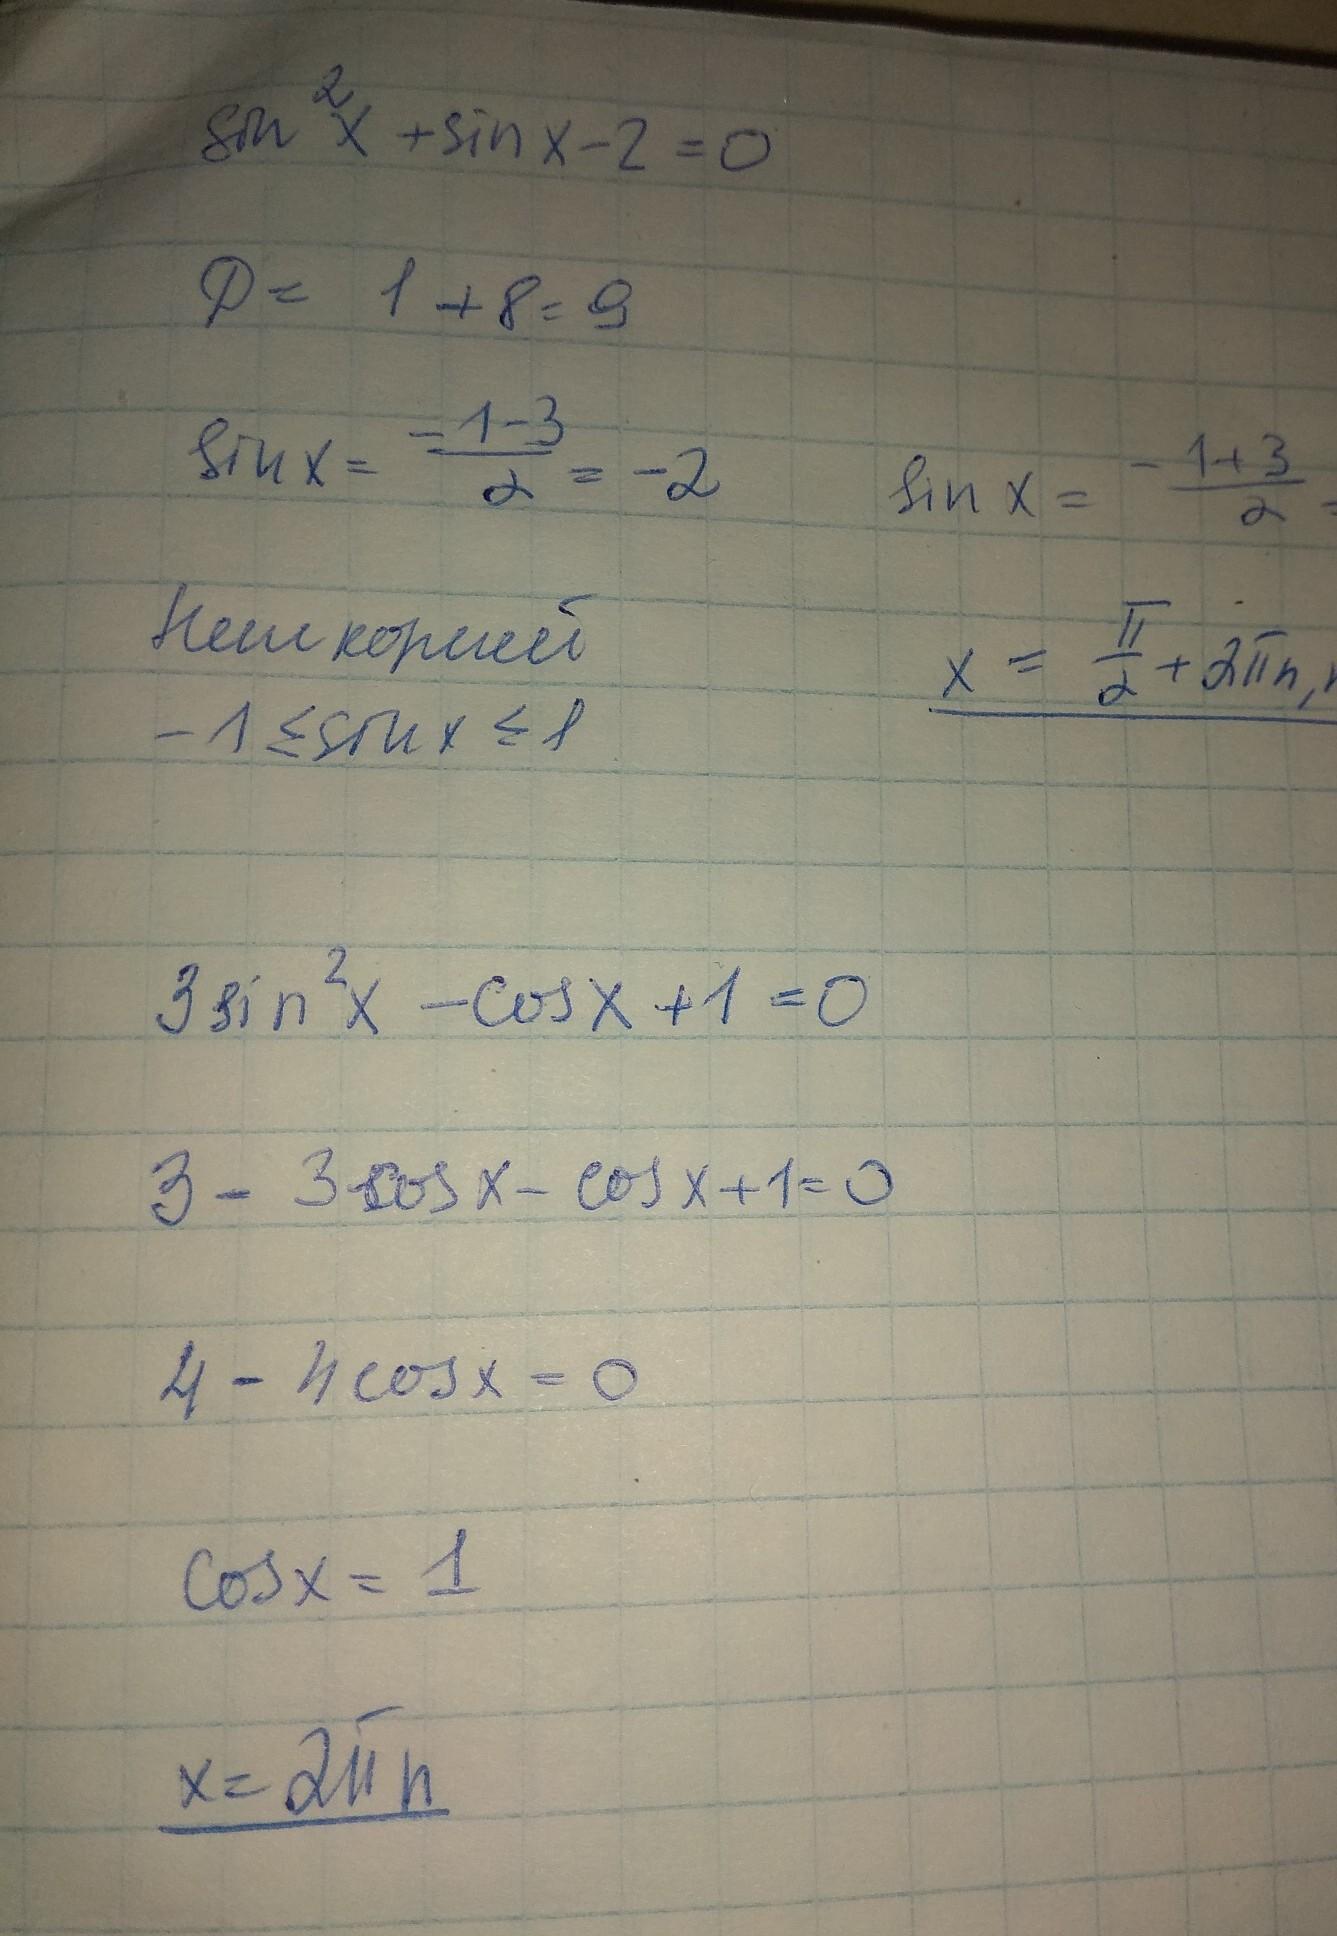 sin²x + sin x - 2 = 0
D = 1 + 8 = 9
sin x = (-1-3)/2 = -2
sin x = (-1+3)/2 =
Нет корней
x = π/2 + 2πn,
-1 ≤ sin x ≤ 1
3 sin²x - cos x + 1 = 0
3 - 3 cos x - cos x + 1 = 0
4 - 4 cos x = 0
cos x = 1
x = 2πn